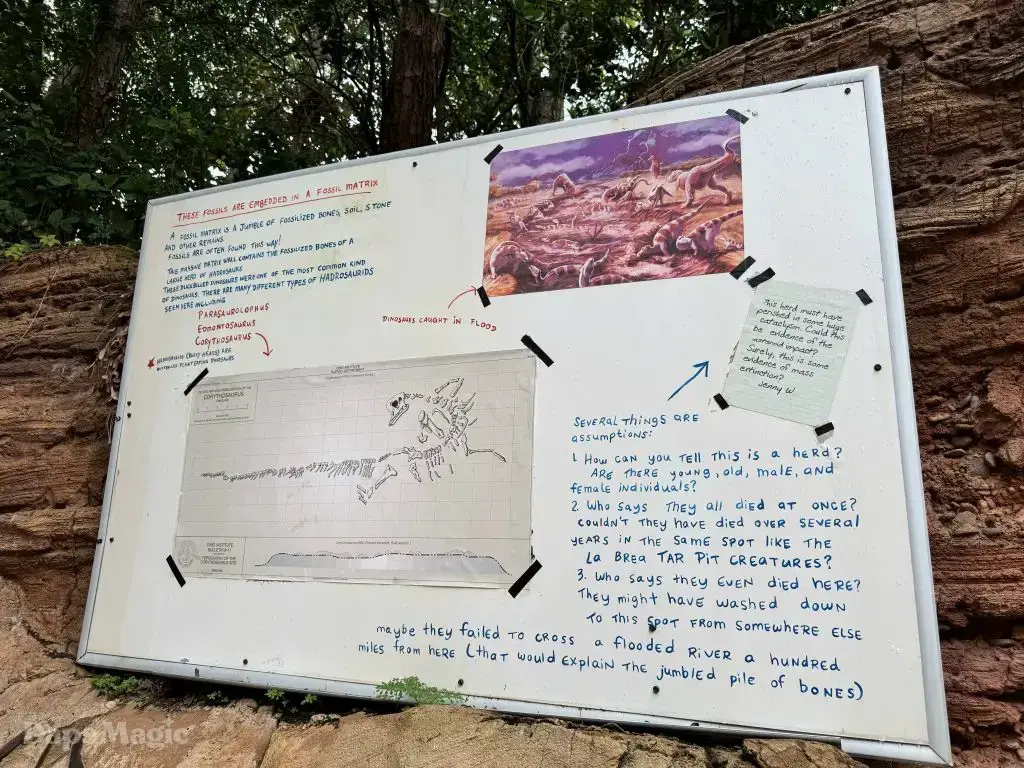 THESE FOSSILS ARE EMBEDDED IN A FOSSIL MATRIX
A FOSSIL MATRIX IS A JUMBLE OF FOSSILIZED BONES, SOIL, STONE
AND OTHER REMAINS
FOSSILS ARE OFTEN FOUND THIS WAY!
THIS MASSIVE MATRIX WALL CONTAINS THE FOSSILIZED BONES OF A
LARGE HERD OF HADROSAURS
THESE DUCKBILLED DINOSAURS WERE ONE OF THE MOST COMMON KIND
OF DINOSAURS. THERE ARE MANY DIFFERENT TYPES OF HADROSAURIDS
SEEN HERE INCLUDING
PARASAUROLOPHUS
EDMONTOSAURUS
CORYTHOSAURUS
HADROSAURUS (BULKY HEADS) ARE
PLANT EATING DINOSAURS
DINOSAURS CAUGHT IN FLOOD
DINO INSTITUTE
SURVEY DEPARTMENT
CORYTHOSAURUS
DINO INSTITUTE
BULLETIN #11
TOPOGRAPHY OF THE
CORYTHOSAURUS SITE
This herd must have
perished in some huge
cataclysm. Could this
be evidence of the
asteroid impact?
Surely, this is some
evidence of mass
extinction?
Jenny W
SEVERAL THINGS ARE
assumptions:
1. How can you tell this is a herd?
ARE THERE YOUNG, OLD, MALE, AND
female individuals?
2. Who says they all died at once?
couldn't they have died over several
years in the same spot like the
La Brea Tar Pit creatures?
3. Who says they even died here?
They might have washed down
to this spot from somewhere else
maybe they failed to cross a flooded river a hundred
miles from here (that would explain the jumbled pile of bones)
DapsMagic